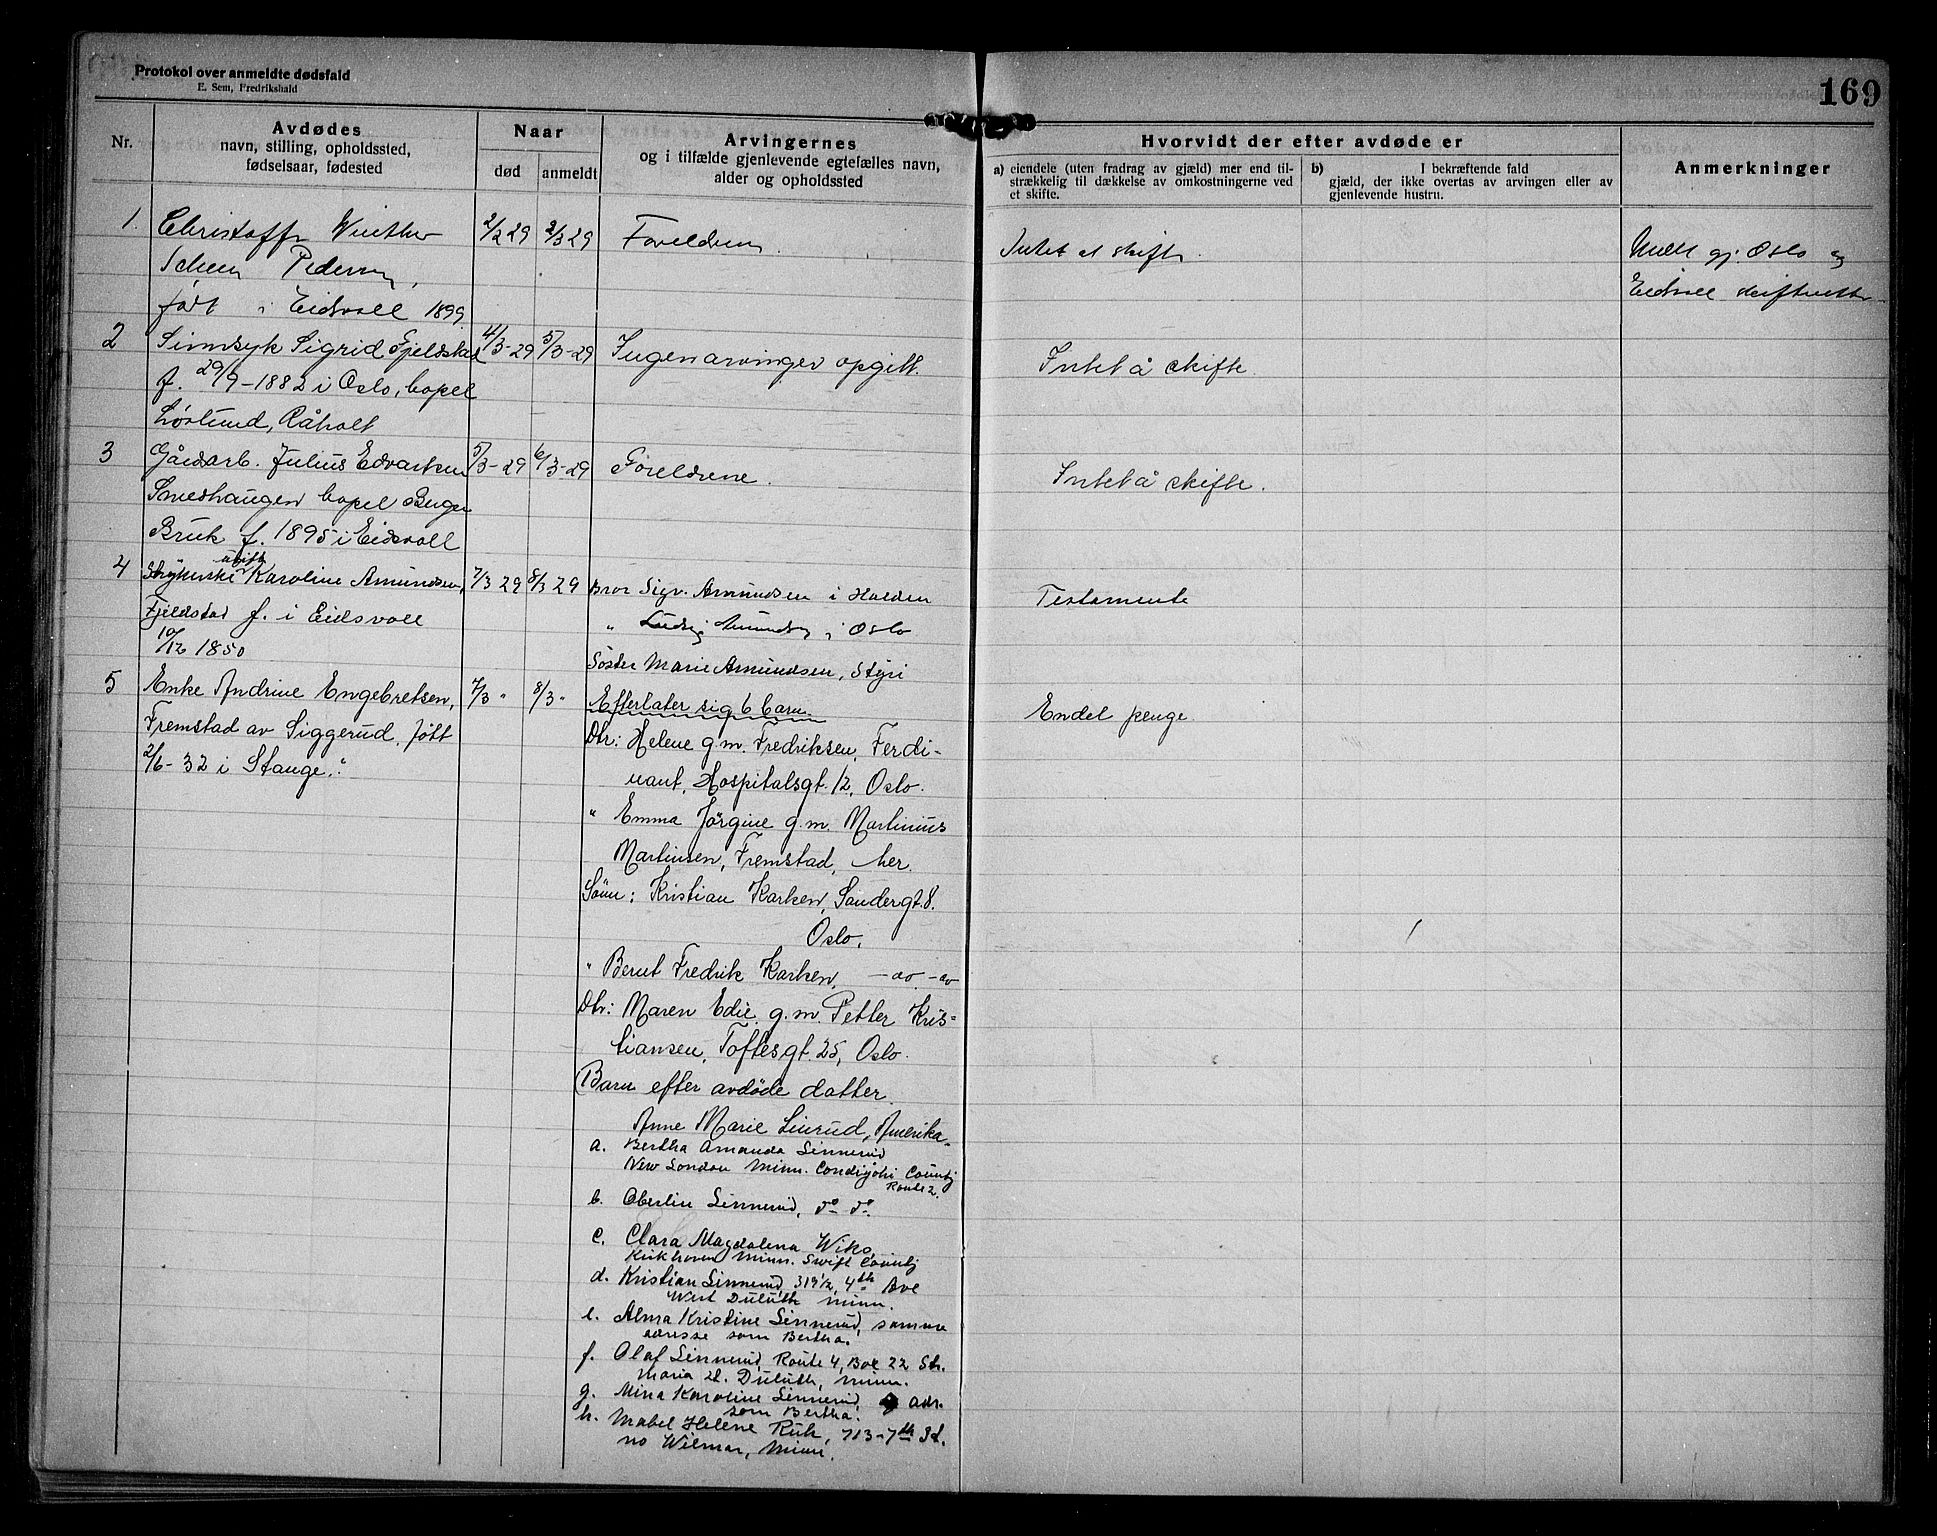 Protokol over anmeldte dødsfald
E. Sem, Fredrikshald
169
Nr.
Avdødes
navn, stilling, opholdssted,
fødselsaar, fødested
Naar
død
anmeldt
Arvingernes
og i tilfælde gjenlevende egtefælles navn,
alder og opholdssted
Hvorvidt der efter avdøde er
a) eiendele (uten fradrag av gjæld) mer end til-
strækkelig til dækkelse av omkostningerne ved
et skifte.
b) I bekræftende fald
gjæld, der ikke overtas av arvingen eller av
gjenlevende hustru.
Anmerkninger
1. Christoffer Winther 2/2 29 2/3 29 Foreldrene.
Scheen Pedersen,
født i Eidsvoll 1899
Intet at skifte.
Medd gj. Oslo og
Eidsvoll skifterett
2 Sinnsyk Sigrid Gjeldstad 4/3-29 5/3-29 Ingen arvinger opgitt.
f. 29/9-1882 i Oslo, bopel
Løslund, Råholt
Intet å skifte
3 Gårdarb. Julius Edvartsen 5/3-29 6/3-29 Foreldrene.
Smedhaugen bopel
Bruk f. 1895 i Eidsvoll
Intet å skifte.
4 ugift Karoline Amundsen, 7/3 29 8/3 29 Bror Sigv. Amundsen i Halden
Fjeldstad f. i Eidsvoll " Ludvig Amundsen i Oslo
10/12 1850 Søster Marie Amundsen, Styri
Testamente
5 Enke Andrine Engebretsen, 7/3 " 8/3 " Efterlater sig 6 barn.
Fremstad av Siggerud, født
2/6-32 i Stange."
Endel penge.
Dtr: Helene g.m. Fredriksen, Ferdi-
nant, Hospitalsgt. 12, Oslo.
" Emma Jørgine g.m. Martinius
Martinsen, Fremstad, her.
Sønn: Kristian Karlsen, Sandergt. 8.
Oslo.
" Bernt Fredrik Karlsen, -ao.-ao
Dtr: Maren Edie g.m. Petter Kris-
tiansen, Toftesgt. 25, Oslo.
Barn efter avdøde datter.
Anne Marie Linrud, Amerika.
a. Bertha Amanda Linnerud
New London Minn. Condijohi County
Route 2.
b. Oberlin Linnerud, do do.
c. Clara Magdalena Wiks,
Kirkhoven Minn. Swift County
d. Kristian Linnerud, 319 1/2, 4th Ave
West Duluth Minn.
e. Alma Kristine Linnerud, samme
adresse som Bertha.
f. Olaf Linnerud, Route 4, Box 22 St.
Maria St. Duluth, Minn.
g. Mina Karoline Linnerud, adr.
som Bertha.
h. Mabel Helene Ruh, 713-7th St.
no Wilmar, Minn.